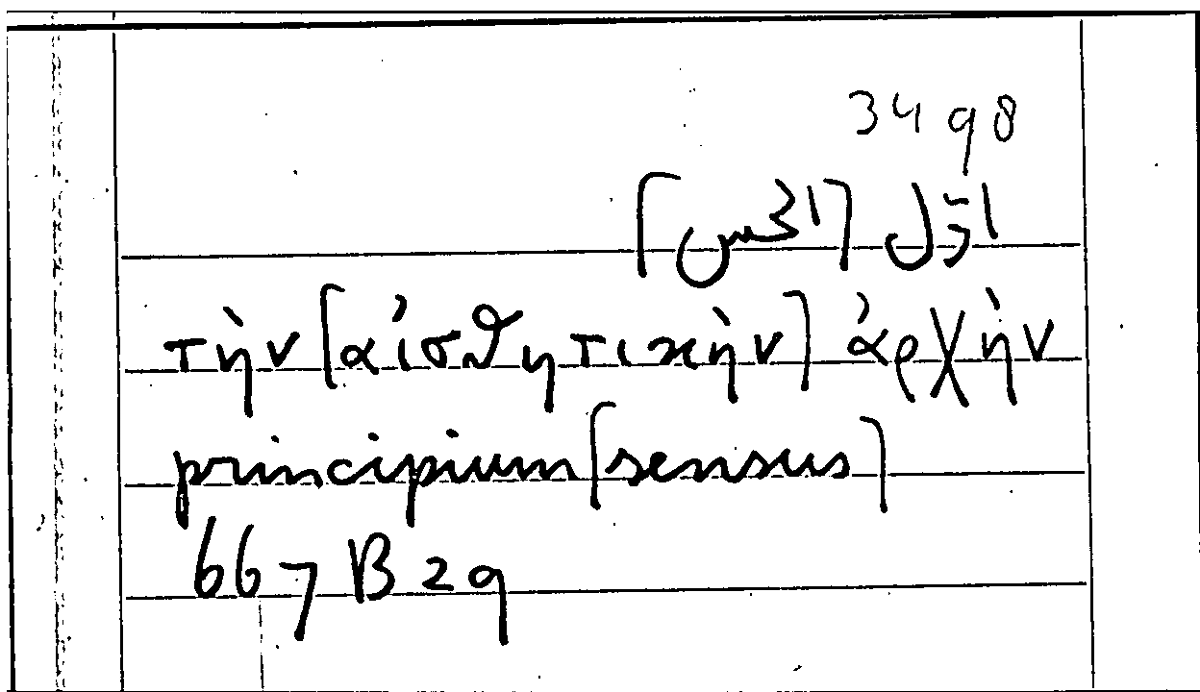 3498
اوّل [الحس]
τὴν [αἰσϑητικὴν] ἀρχὴν
principium [sensus]
667 B 29